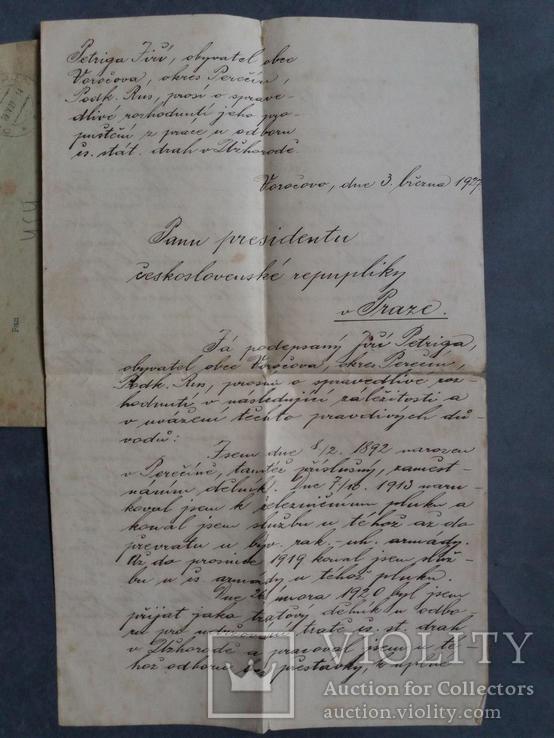 Petriga Jiří, obyvatel obce
Voročova, okres Perečín,
Podk. Rus, prosí o sprave-
dlivé rozhodnutí jeho pro-
puštění z prace u odboru
čs. stát. drah v Užhorodě.
Voročovo, dne 3. března 1927
Panu presidentu
československé repupliky
v Praze.
Já podepsaný Jiří Petriga,
obyvatel obce Voročova, okres Perečín,
Podk. Rus, prosím o spravedlivé roz-
hodnutí v následující záležitosti a
v uvážení těchto pravdivých dů-
vodů:
Jsem dne /2. 1892 narozen
v Perečíně, tamtéž příslušný, zaměst-
naním dělník. Dne 7/10. 1913 naru-
koval jsem k železničnímu pluku a
konal jsem službu u tehož až do
převratu u býv. rak.-uh. armady.
Až do prosince 1919 konal jsem služ-
bu u čs. armady u tehož pluku.
Dne unora 1920 byl jsem
přijat jako traťový dělník u odbo-
ru pro udržování tratě čs. st. drah
v Užhorodě a pracoval jsem u te-
hož odboru bez přestávky, z uplné
Psaní
VIOLITY
Auction for Collectors
auction.violity.com